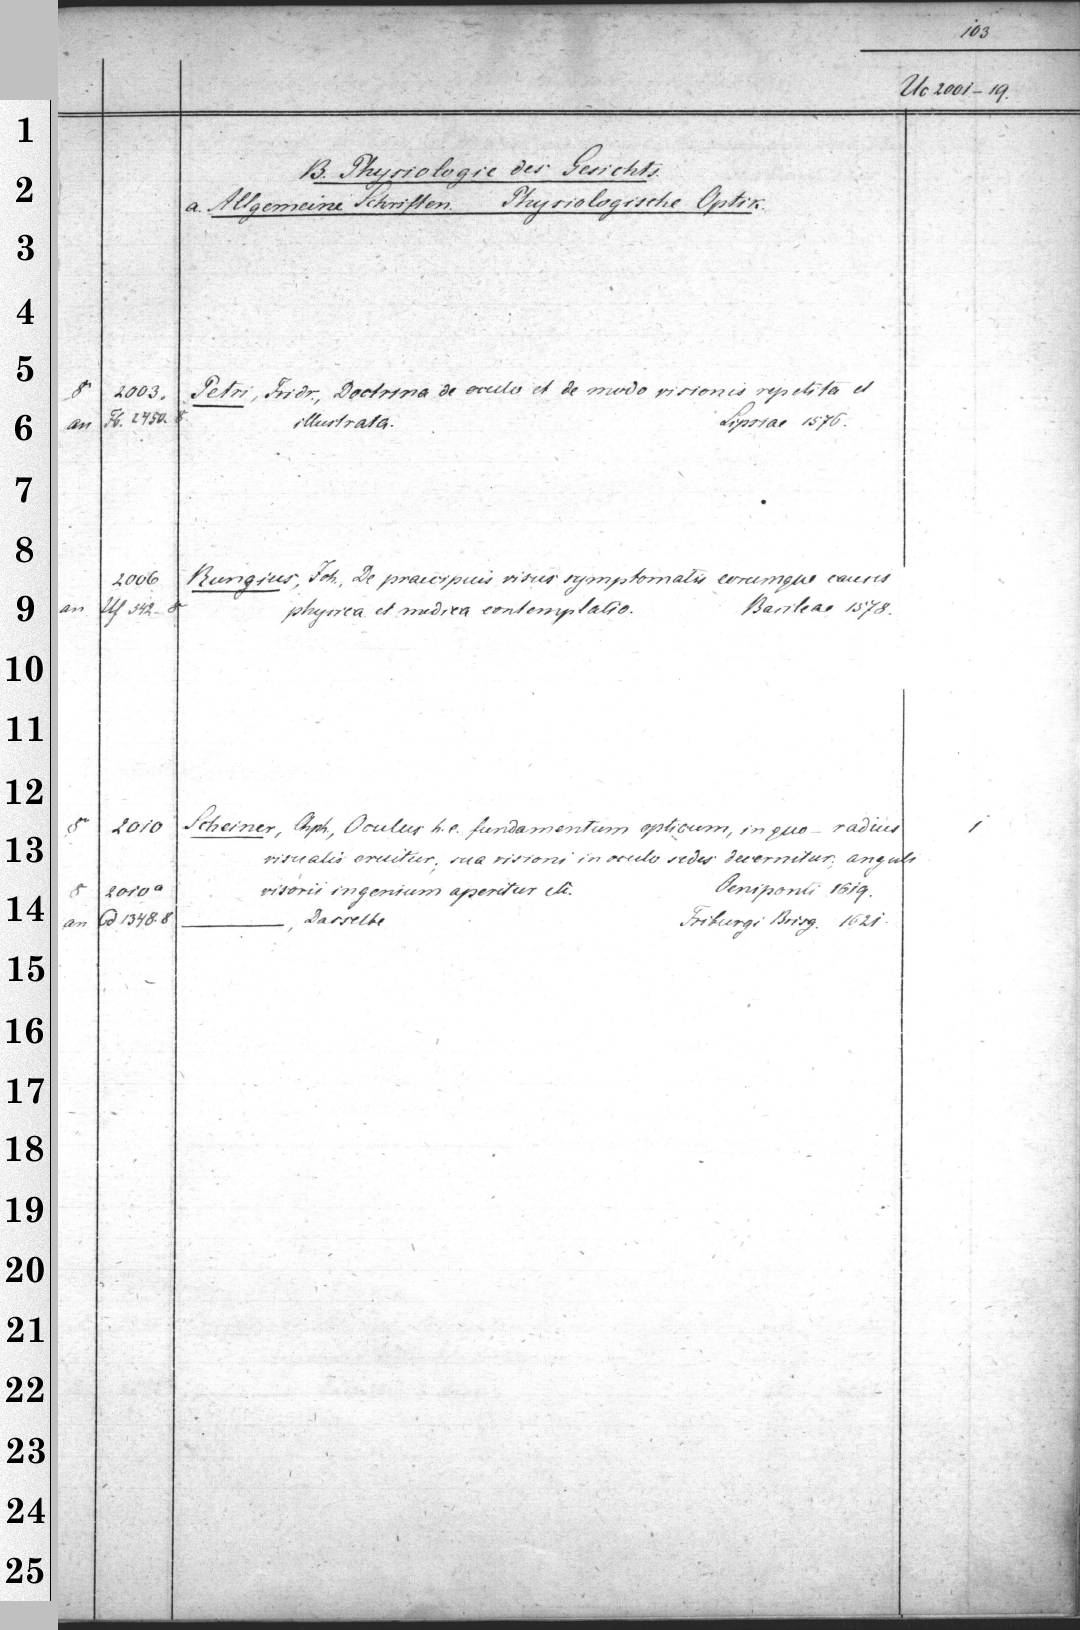 103
Uc 2001-19.
B. Physiologie des Gesichts.
a. Allgemeine Schriften. Physiologische Optik.
8° 2003. Petri, Fridr., Doctrina de oculo et de modo visionis repetita et
an Fb. 2450. 8 illustrata. Lipsiae 1576.
2006 Rungius, Joh., De praecipuis visus symptomatis eorumque causis
an Uf 542. 8 physica et medica contemplatio. Basileae 1578.
8° 2010 Scheiner, Chph., Oculus h. e. fundamentum opticum, in quo - radius 1
visualis eruitur, sua visioni in oculo sedes decernitur, anguli
8 2010a visorii ingenium aperitur etc. Oeniponti 1619.
an Cd 1348. 8 ———, Dasselbe Friburgi Brisg. 1621.
1
2
3
4
5
6
7
8
9
10
11
12
13
14
15
16
17
18
19
20
21
22
23
24
25